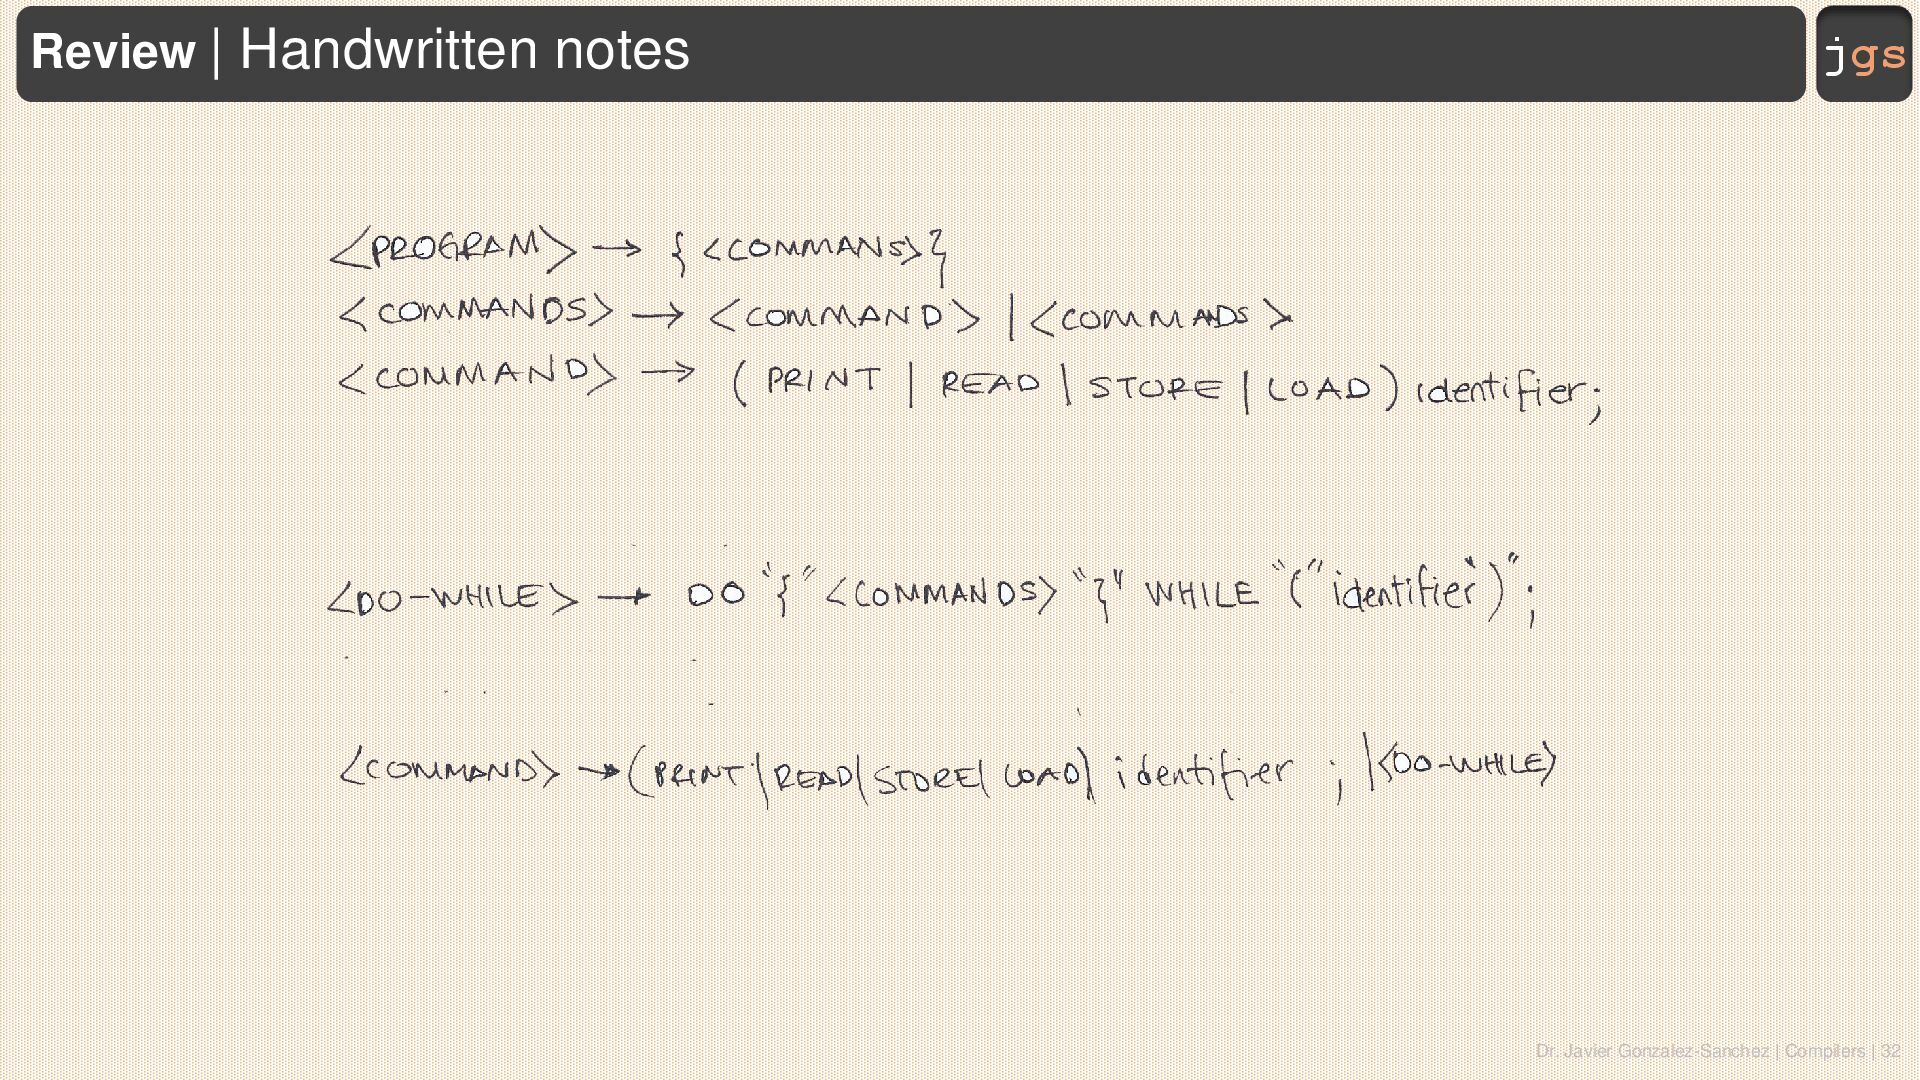 Review | Handwritten notes
jgs
<PROGRAM> → { <COMMANS> }
<COMMANDS> → <COMMAND> | <COMMANDS>
<COMMAND> → ( PRINT | READ | STORE | LOAD ) identifier ;
<DO-WHILE> → DO "{" <COMMANDS> "}" WHILE "(" identifier ")" ;
<COMMAND> → ( PRINT | READ | STORE | LOAD ) identifier ; | <DO-WHILE>
Dr. Javier Gonzalez-Sanchez | Compilers | 32